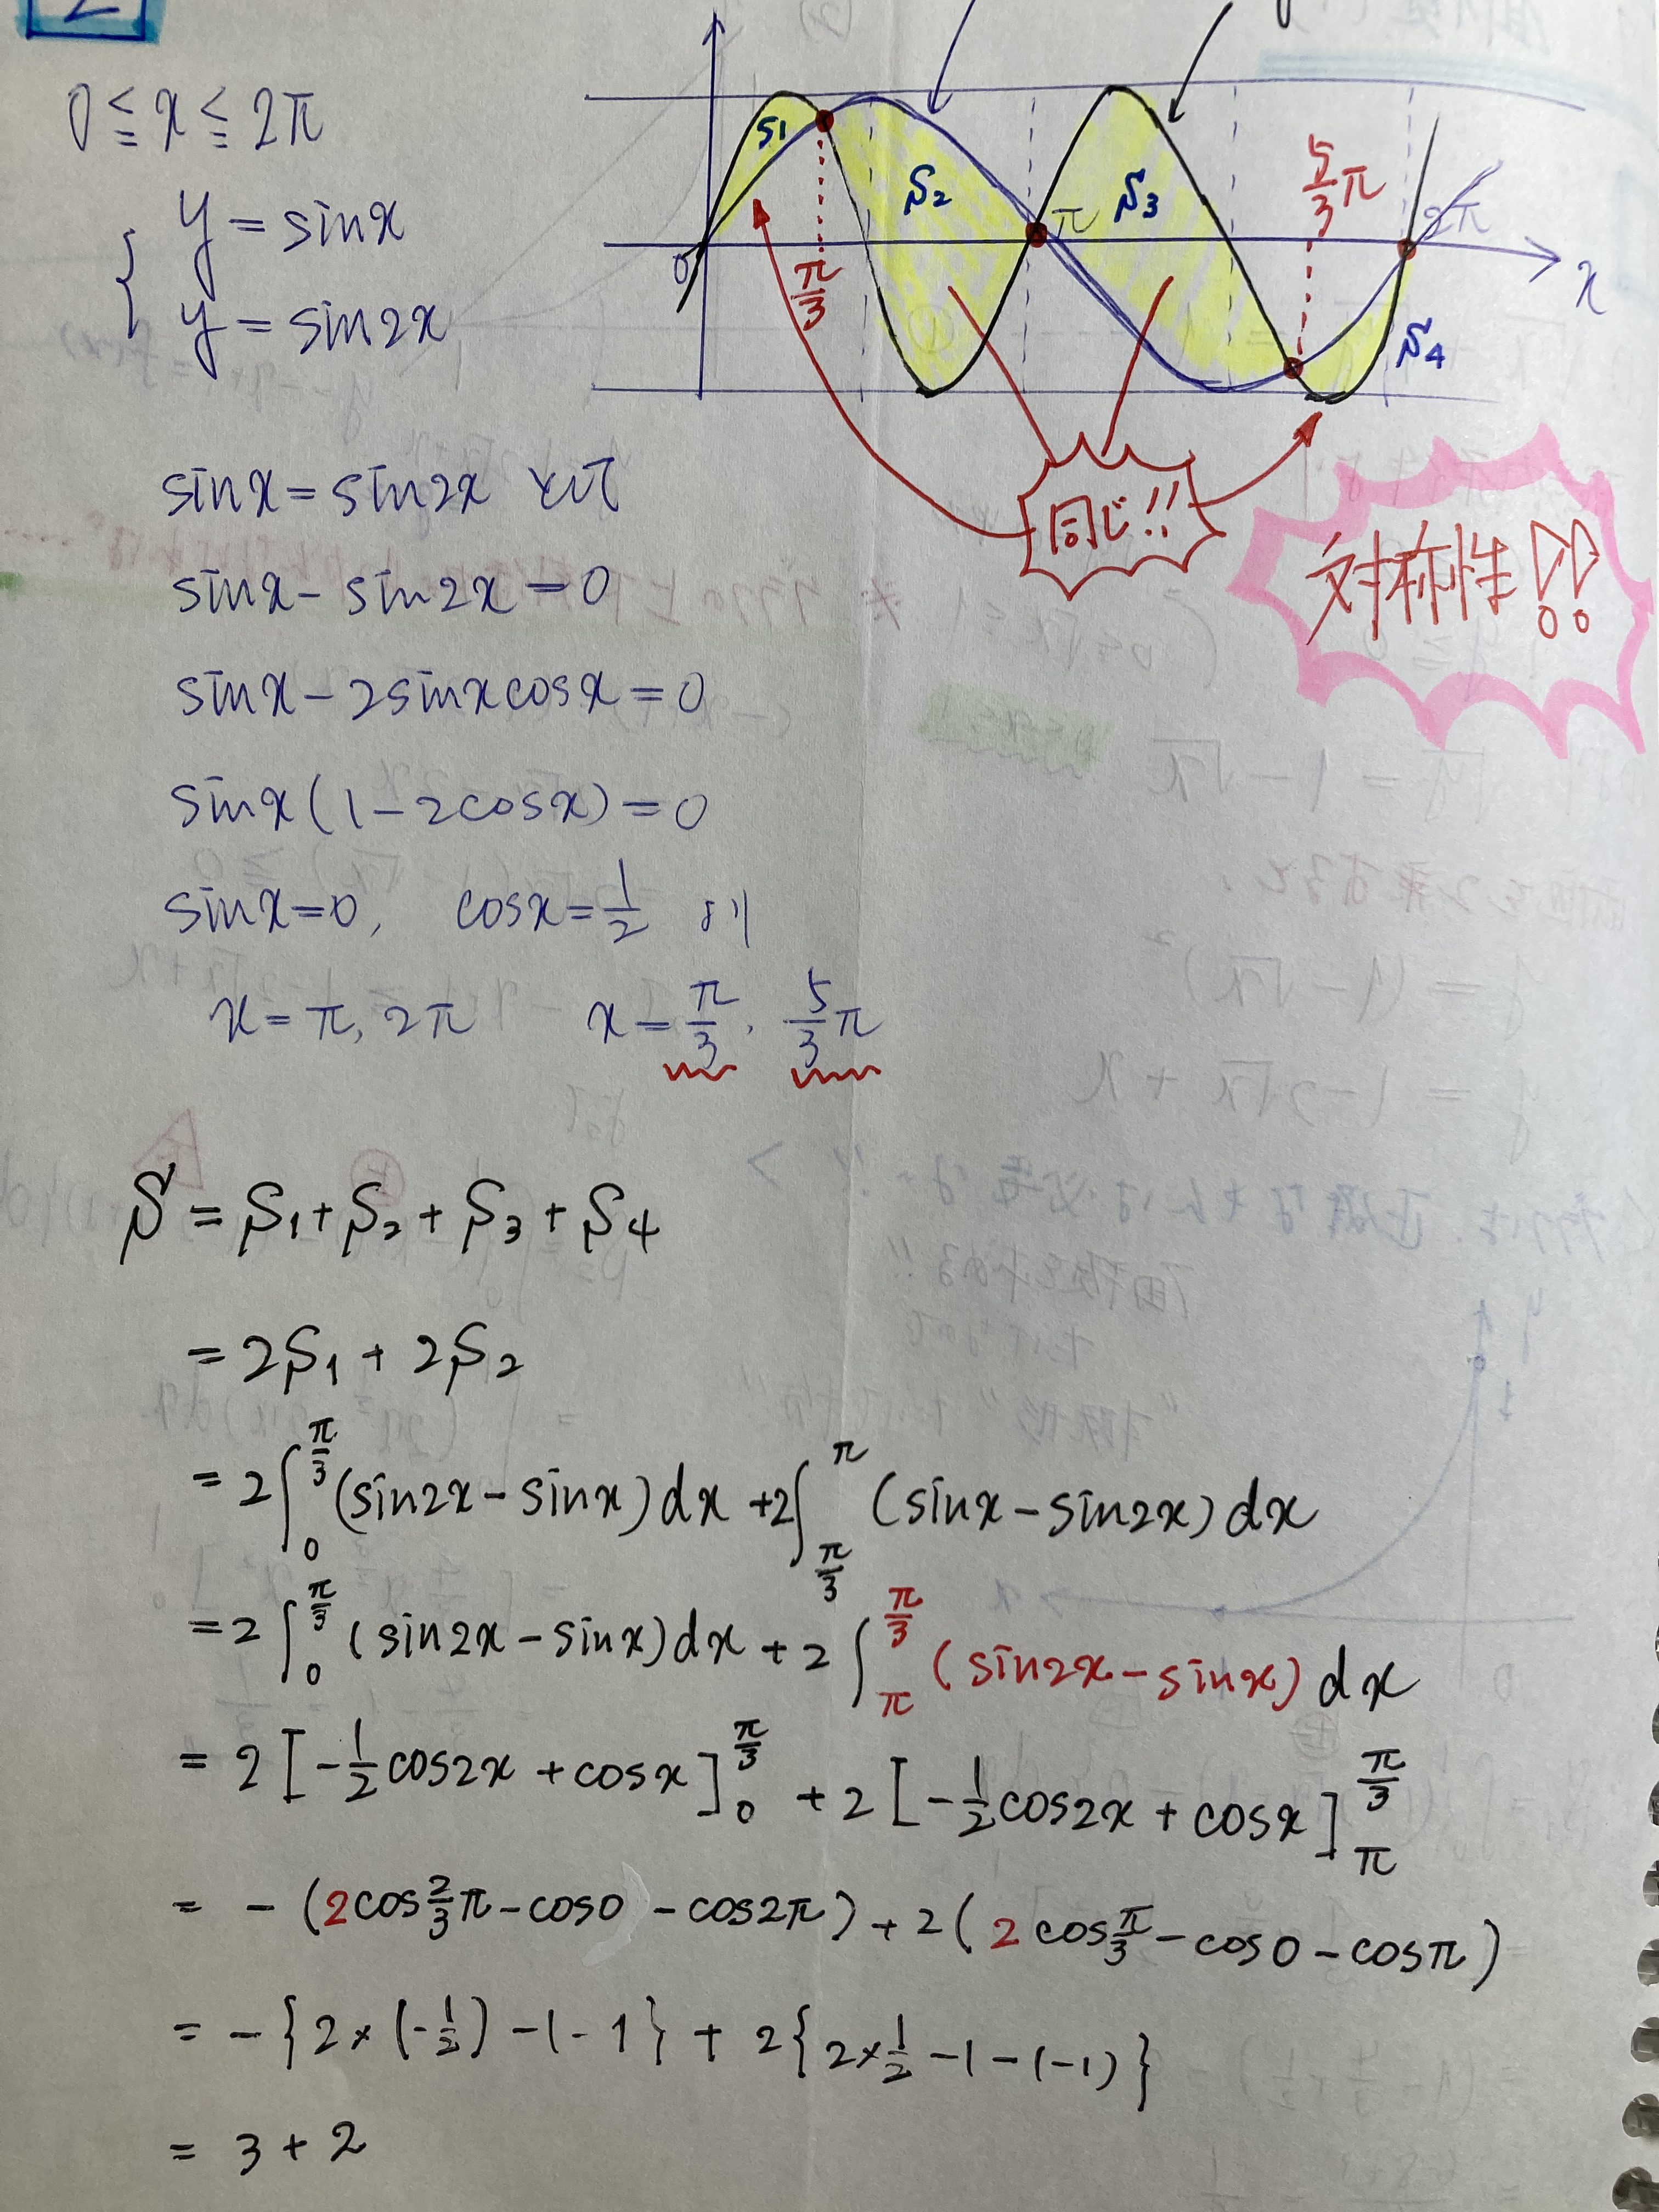 2
0 ≦ x ≦ 2π
y = sinx
y = sin2x
S1
S2
S3
S4
0
π/3
π
5/3 π
2π
x
同じ!!
対称性!!
sinx = sin2x として
sinx - sin2x = 0
sinx - 2sinxcosx = 0
sinx(1 - 2cosx) = 0
sinx=0, cosx=1/2 より
x = π, 2π x = π/3, 5/3 π
S = S1 + S2 + S3 + S4
= 2S1 + 2S2
= 2∫_0^{π/3} (sin2x - sinx)dx + 2∫_{π/3}^{π} (sinx - sin2x)dx
= 2∫_0^{π/3} (sin2x - sinx)dx + 2∫_{π}^{π/3} (sin2x - sinx)dx
= 2[-1/2 cos2x + cosx]_0^{π/3} + 2[-1/2 cos2x + cosx]_{π}^{π/3}
= -(2cos 2/3 π - cos0 - cos2π) + 2(2cos π/3 - cos0 - cosπ)
= -{2×(-1/2) - 1 - 1} + 2{2×1/2 - 1 - (-1)}
= 3 + 2